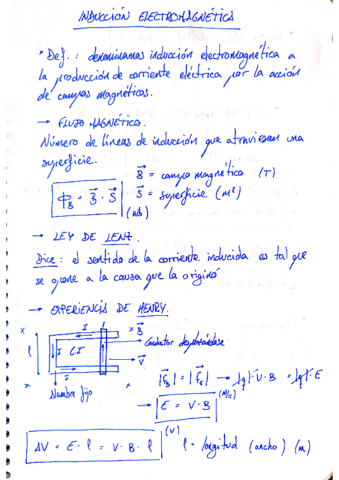 INDUCCIÓN ELECTROMAGNÉTICA
* Def.: denominamos inducción electromagnética a
la producción de corriente eléctrica por la acción
de campos magnéticos.
→ FLUJO MAGNÉTICO.
Número de líneas de inducción que atraviesan una
superficie.
B⃗ = campo magnético (T)
ϕ_B = B⃗ · S⃗ (Wb)
S⃗ = superficie (m²)
→ LEY DE LENZ.
Dice: el sentido de la corriente inducida es tal que
se opone a la causa que la originó
→ EXPERIENCIA DE HENRY.
x I x B⃗
l I I I Conductor desplazándose
I V⃗
Alambre fijo
|F⃗_B| = |F⃗_E| → |q|·V·B = |q|·E
→ |E = V·B| (N/C)
ΔV = E · l = V · B · l (V)
l = longitud (ancho) (m)